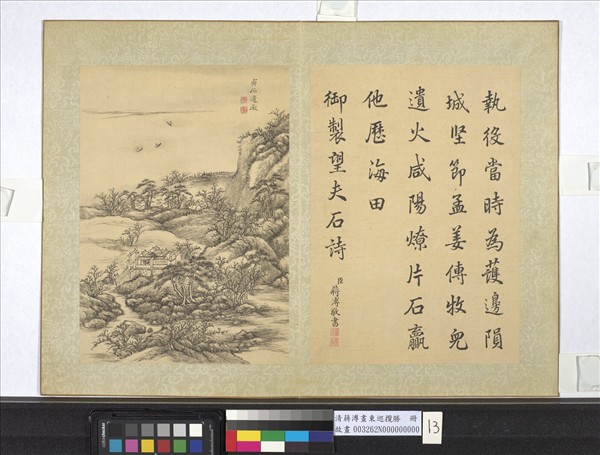 執後當時為護邊隕
城坚節孟姜傳牧兒
遺火咸陽燎片石贏
他歷海田
御製望夫石詩
臣蔣溥敬書
清蔣溥畫東巡攬勝 冊
故畫 003262N000000000
13